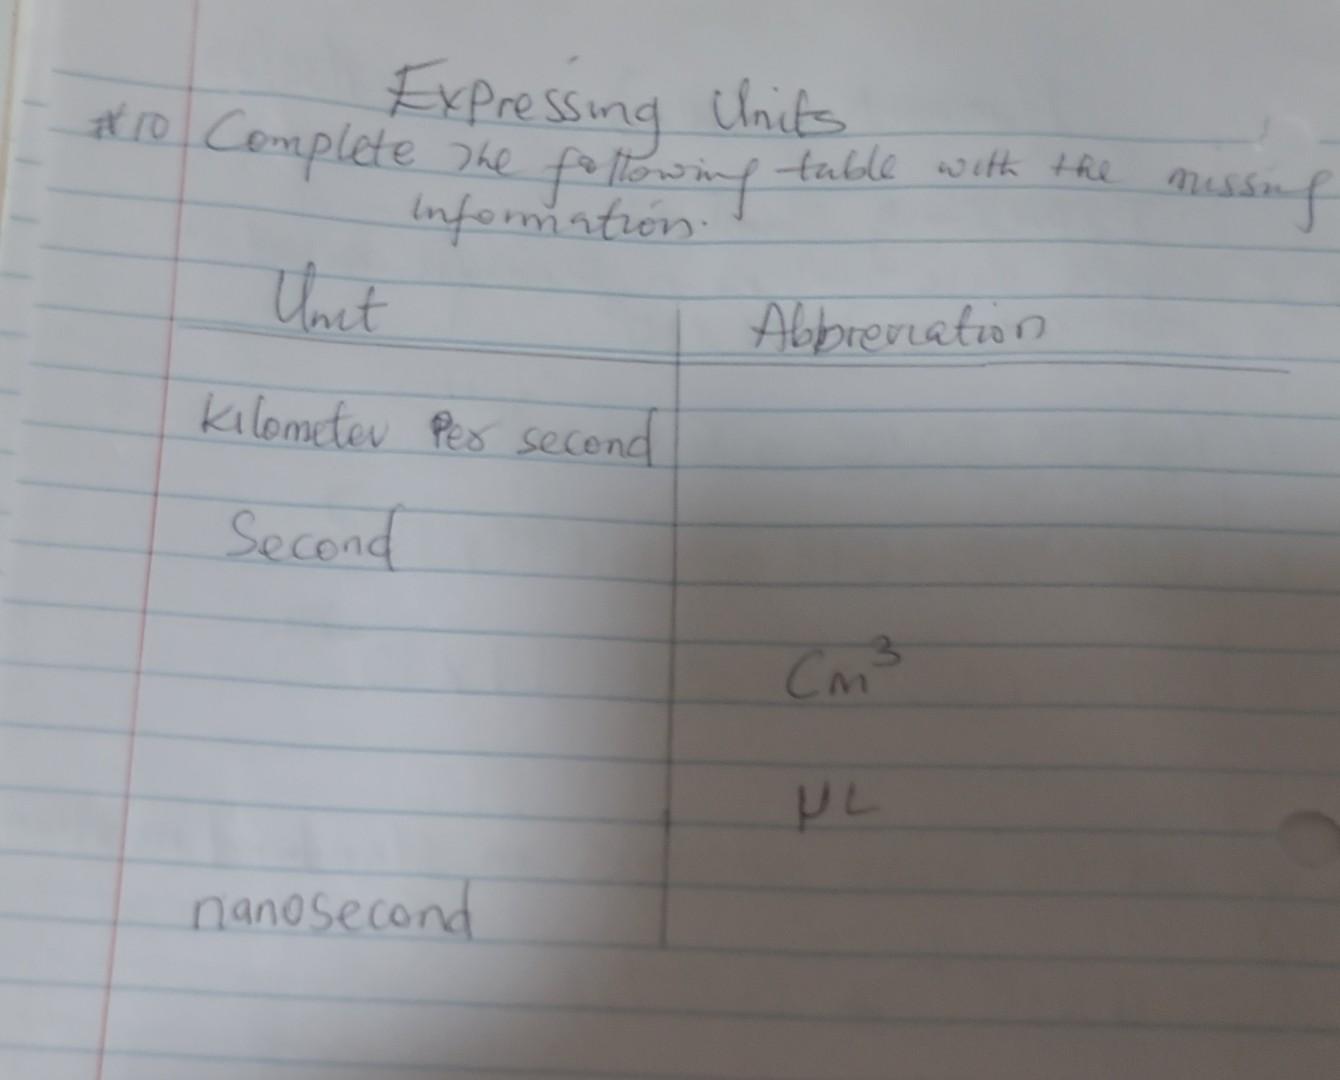 Expressing Units
#10 Complete the following table with the missing
information.
Unit Abbreviation
Kilometer Per second
Second
Cm³
μL
nanosecond